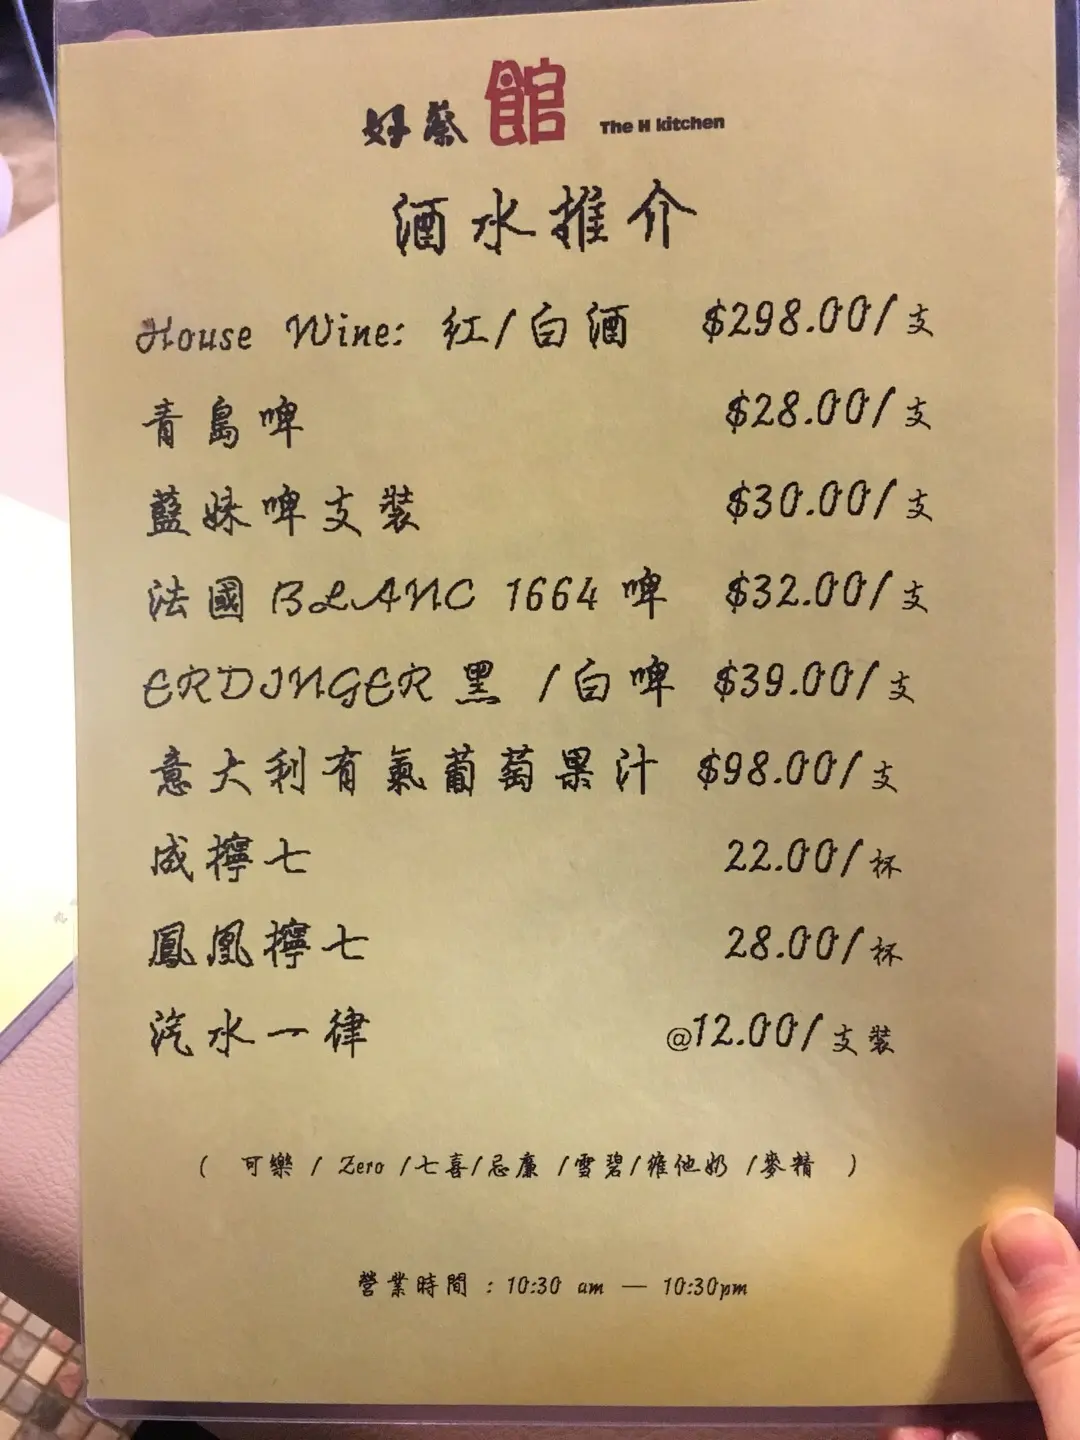 好蔡館 The H kitchen
酒水推介
House Wine: 紅/白酒 $298.00/支
青島啤 $28.00/支
藍妹啤支裝 $30.00/支
法國 BLANC 1664 啤 $32.00/支
ERDINGER 黑 /白啤 $39.00/支
意大利有氣葡萄果汁 $98.00/支
咸檸七 22.00/杯
鳳凰檸七 28.00/杯
汽水一律 @12.00/支裝
( 可樂 / Zero /七喜/忌廉 /雪碧/維他奶 /麥精 )
營業時間 : 10:30 am — 10:30pm